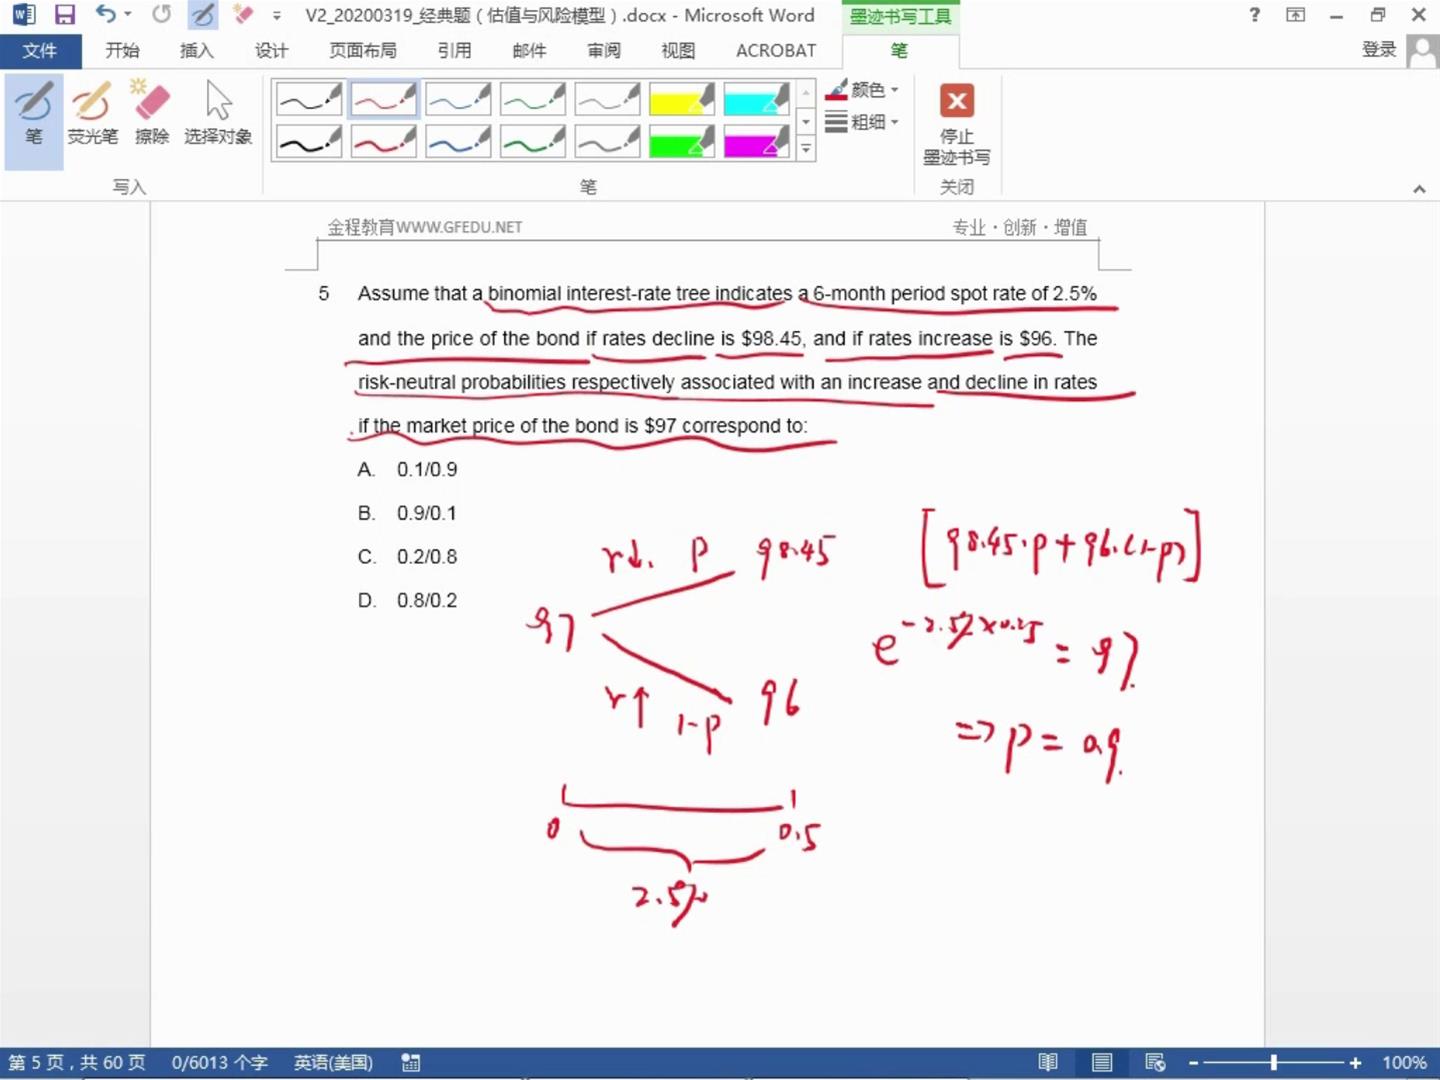 V2_20200319_经典题（估值与风险模型）.docx - Microsoft Word
墨迹书写工具
文件 开始 插入 设计 页面布局 引用 邮件 审阅 视图 ACROBAT 笔 登录
笔 荧光笔 擦除 选择对象
颜色
粗细
停止
墨迹书写
写入 笔 关闭
金程教育WWW.GFEDU.NET 专业·创新·增值
5 Assume that a binomial interest-rate tree indicates a 6-month period spot rate of 2.5%
and the price of the bond if rates decline is $98.45, and if rates increase is $96. The
risk-neutral probabilities respectively associated with an increase and decline in rates
if the market price of the bond is $97 correspond to:
A. 0.1/0.9
B. 0.9/0.1
C. 0.2/0.8
D. 0.8/0.2
r↓. p 98.45
97
r↑ 1-p 96
[98.45·p+96·(1-p)]
e^-2.5%×0.25 = 97.
=> p = 0.9.
0 0.5
2.5%
第 5 页，共 60 页 0/6013 个字 英语(美国) 100%